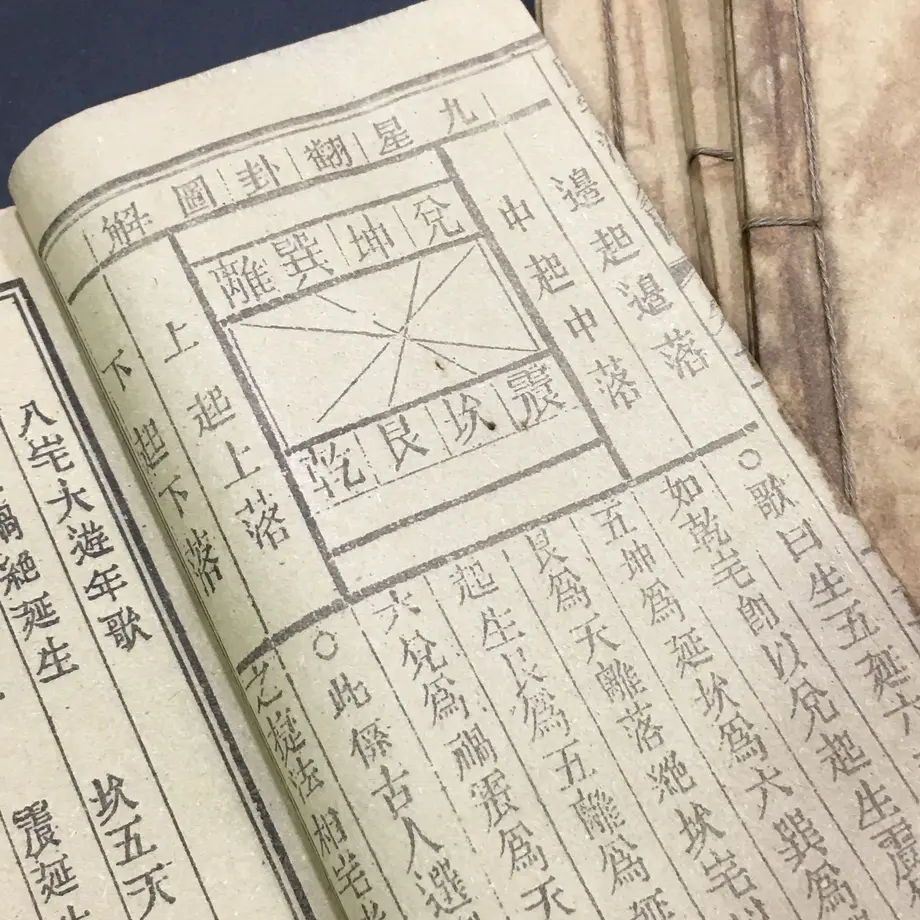 九星翻卦圖解
邉起邉落
中起中落
兌坤巽離
震坎艮乾
上起上落
下起下落
○歌曰生五延六
如乾宅卽以兌起生震
五坤爲延坎爲六巽爲
艮爲天離落絶坎宅
起生艮爲五離爲延
六兌爲禍震爲天
○此係古人選
之㨗法相宅
八宅大遊年歌
坎五天
禍絶延生
震延生